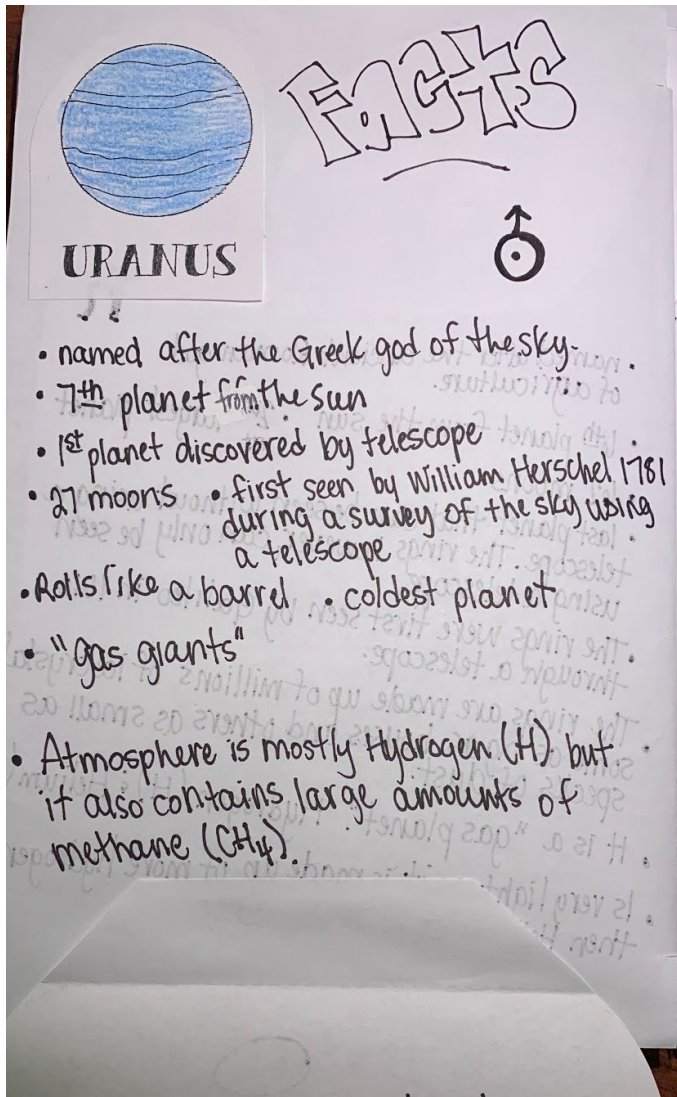 Facts
URANUS
• named after the Greek god of the sky.
• 7th planet from the sun
• 1st planet discovered by telescope
• 27 moons • first seen by William Herschel 1781
during a survey of the sky using
a telescope
• Rolls like a barrel • coldest planet
• "gas giants"
• Atmosphere is mostly Hydrogen (H) but
it also contains large amounts of
methane (CH4).